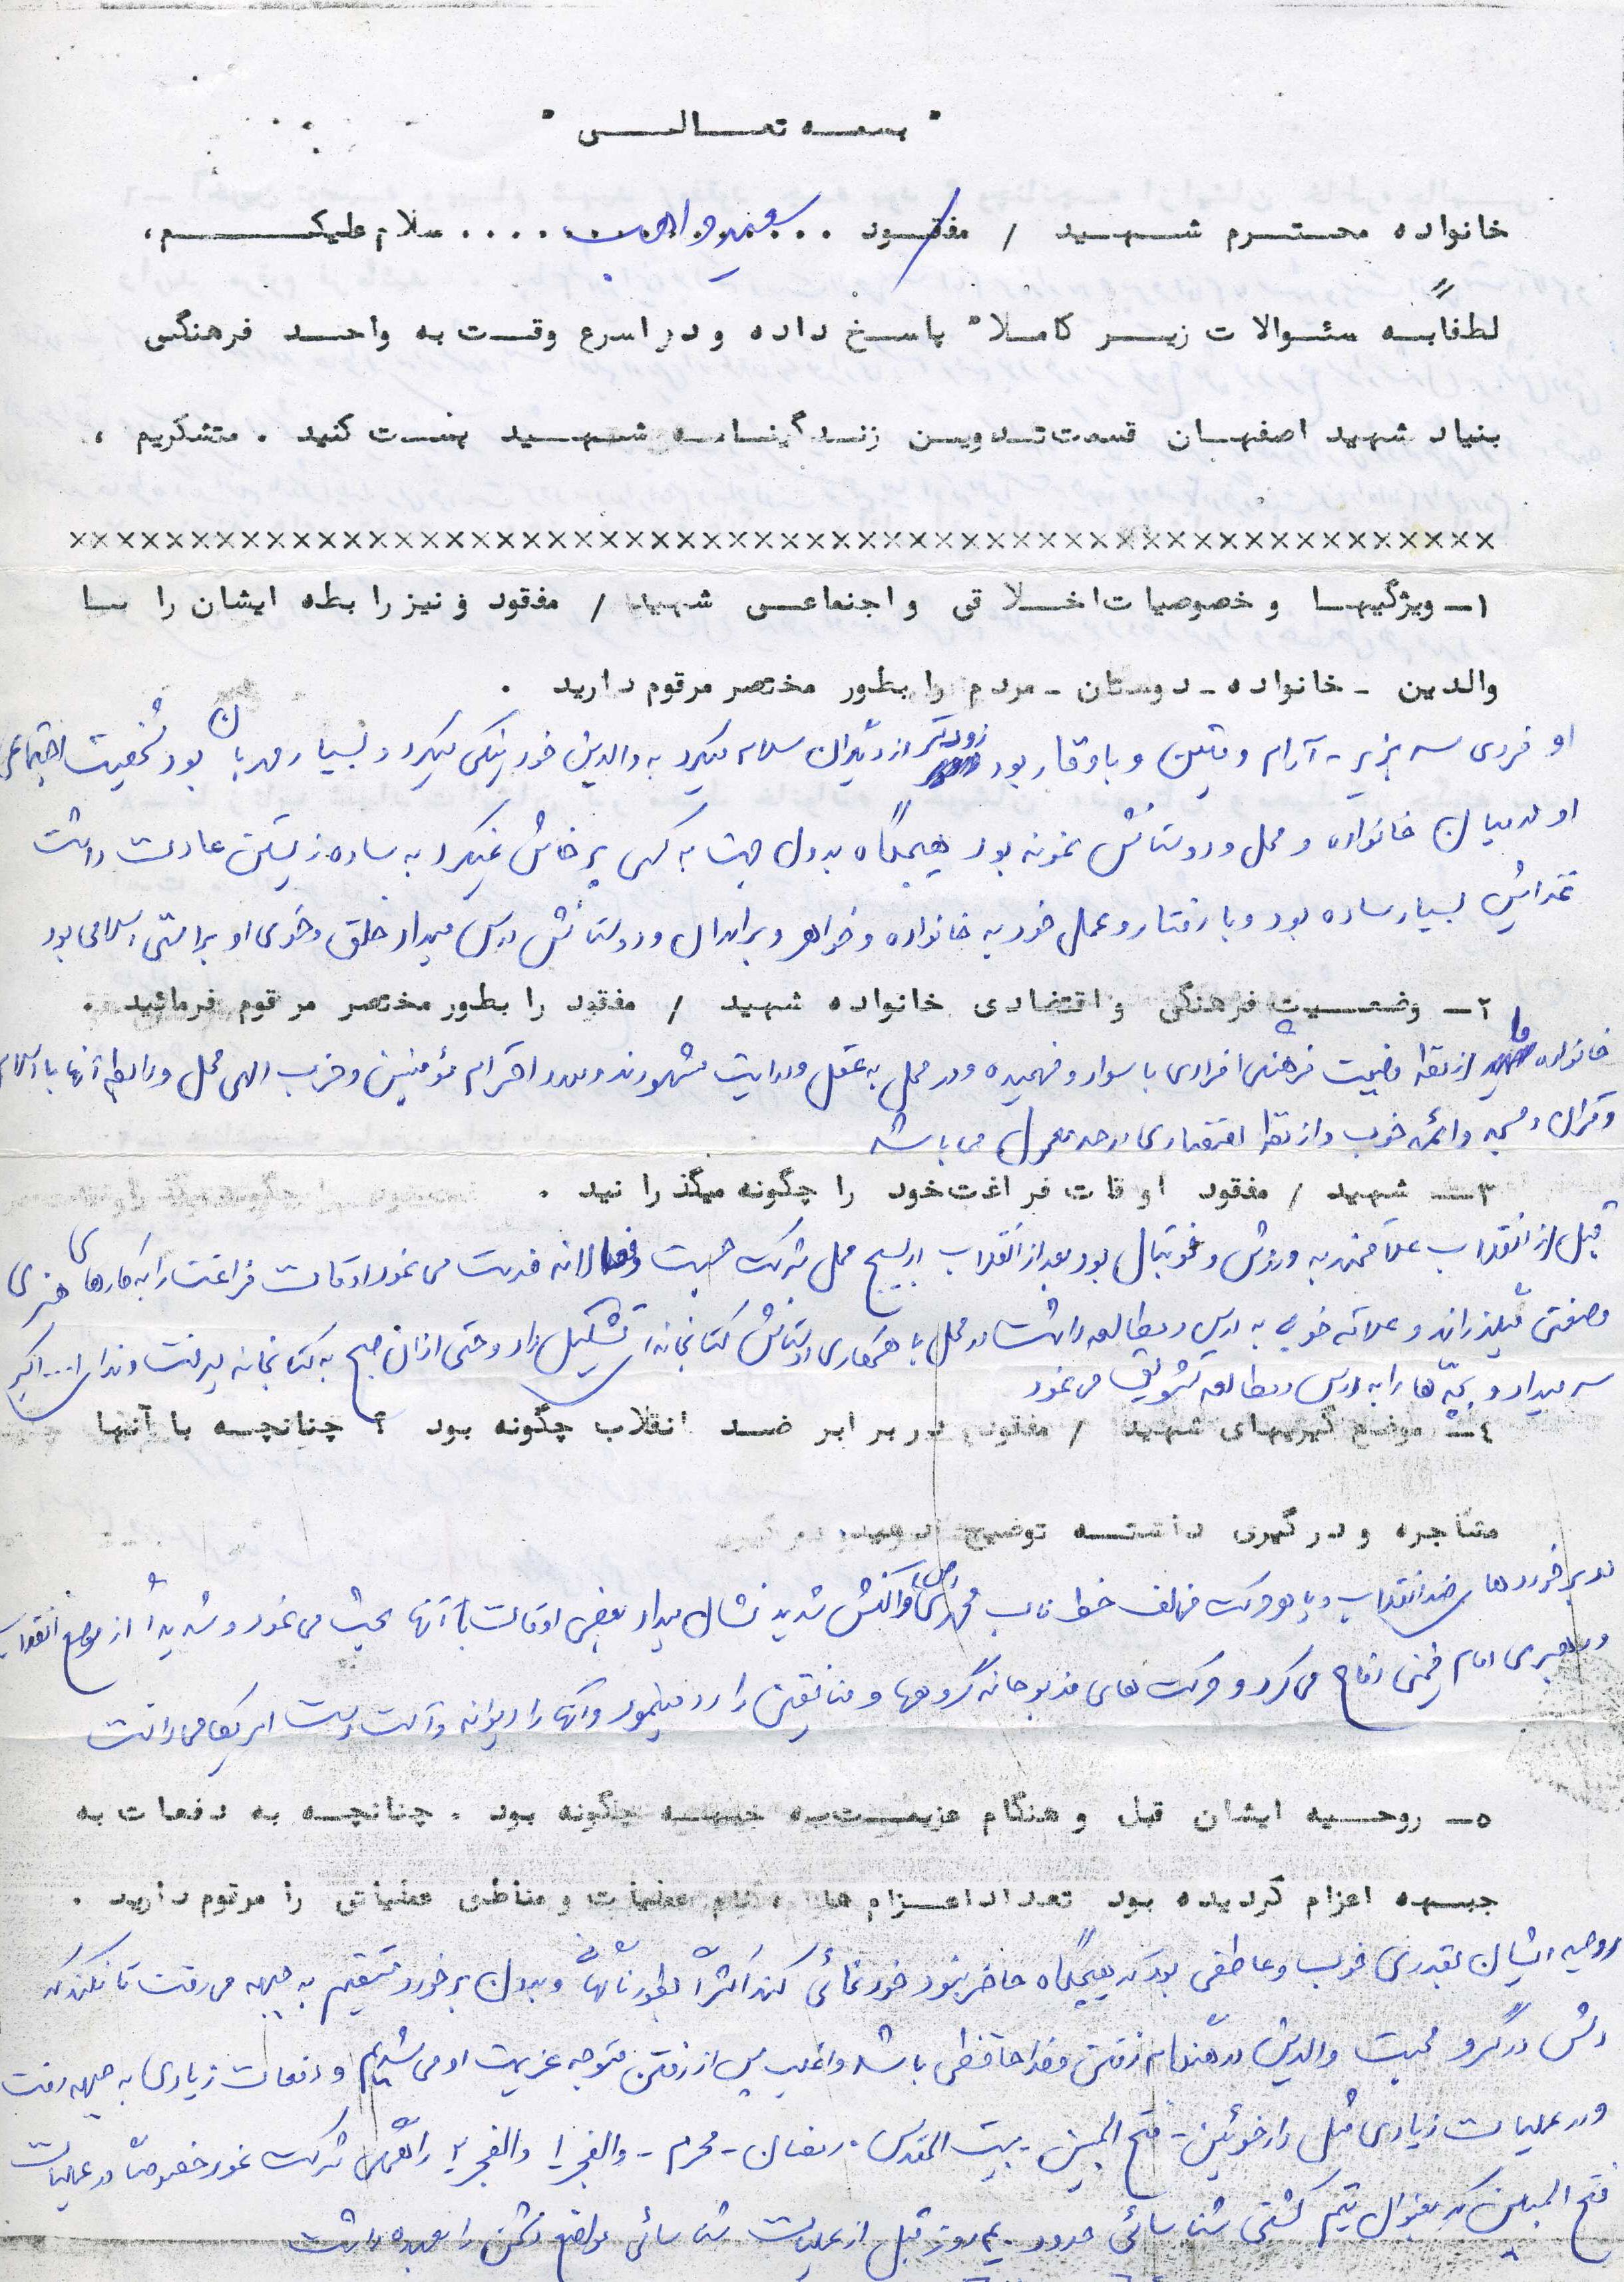 " بسمه تعالی "
خانواده محترم شهید / مفقود .. سعید واهب .... سلام علیکم ،
لطفاً به سئوالات زیر کاملا" پاسخ داده و در اسرع وقت به واحد فرهنگی
بنیاد شهید اصفهان قسمت تدوین زندگینامه شهید پست کنید . متشکریم ،
××××××××××××××××××××××××××××××××××××××××××××××××××××××××
۱ـ ویژگیها و خصوصیات اخلاقی و اجتماعی شهید / مفقود و نیز رابطه ایشان را با
والدین ـ خانواده ـ دوستان ـ مردم را بطور مختصر مرقوم دارید .
او فردی سر بزیر - آرام و متین و باوقار بود زودتر از دیگران سلام میکرد به والدین خود نیکی میکرد و بسیار مهربان بود شخصیت اجتماعی
او در میان خانواده و محل و دوستانش نمونه بود هیچگاه بدون جهت به کسی پرخاش نمیکرد به ساده زیستن عادت داشت
غذایش بسیار ساده بود و با رفتار و عمل خود به خانواده و خواهر و برادران و دوستانش درس میداد خلق و خوی او براستی اسلامی بود
۲ـ وضعیت فرهنگی و اقتضادی خانواده شهید / مفقود را بطور مختصر مرقوم فرمائید .
خانواده ما از نقطه وضعیت فرهنگی افرادی با سواد و فهمیده و در محل به عقل و درایت مشهورند و مورد احترام مؤمنین و حزب الهی محل و رابطه آنها با اسلام
و قرآن و مسجد و ائمه خوب و از نظر اقتصادی در حد معمول می باشد
۳ـ شهید / مفقود اوقات فراغت خود را چگونه میگذرانید .
قبل از انقلاب علاقمند به ورزش و فوتبال بود بعد از انقلاب در بسیج محل شرکت جست و فعالانه خدمت می نمود اوقات فراغت را به کارهای هنری
و صنعتی میگذراند و علاقه خوبی به درس و مطالعه داشت در محل با همکاری دوستانش کتابخانه ای تشکیل داد و حتی اذان صبح به کتابخانه میرفت و ندای ا... اکبر
سر میداد و بچّه ها را به درس و مطالعه تشویق می نمود
٤ـ موضع گیریهای شهید / مفقود در برابر ضد انقلاب چگونه بود ؟ چنانچه با آنها
مشاجره و درگیری داشته توضیح دهید
در برخوردها ی ضد انقلاب و با هر حرکت مخالف خط ناب محمدی (ص) واکنش شدید نشان میداد بعضی اوقات با آنها بحث می نمود و شدیداً از موضع انقلاب
و رهبری امام خمینی دفاع می کرد و حرکت های مذبوحانه گروهها و منافقین را رد مینمود و آنها را دیوانه و آلت دست امریکا می دانست
٥ـ روحیه ایشان قبل و هنگام عزیمت به جبهه چگونه بود . چنانچه به دفعات به
جبهه اعزام گردیده بود تعداد اعزام ها ، نام عملیات و مناطق عملیاتی را مرقوم دارید .
روحیه ایشان بقدری خوب و عاطفی بود که هیچگاه حاضر نبود خودنمائی کند اکثراً بطور ناشناس و بدون برخورد مستقیم به جبهه می رفت تا نکند که
دلش در گرو محبت والدین در هنگام رفتن و خداحافظی باشد و اغلب پس از رفتن متوجه عزیمت او می شدیم و دفعات زیادی به جبهه رفت
و در عملیات زیادی مثل دارخوئین - فتح المبین - بیت المقدس - رمضان - محرم - والفجر ۱ والفجر ۲ شرکت نمود خصوصاً در عملیات
فتح المبین که بعنوان تیم گشتی شناسائی حدود روز قبل از عملیات شناسائی مواضع دشمن را بعهده داشت